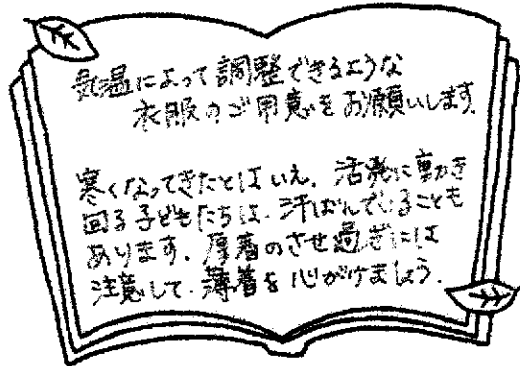 気温によって調整できるような
衣服のご用意をお願いします。
寒くなってきたとはいえ、活発に動き
回る子どもたちは、汗ばんでいることも
あります。厚着のさせ過ぎには
注意して、薄着を心がけましょう。